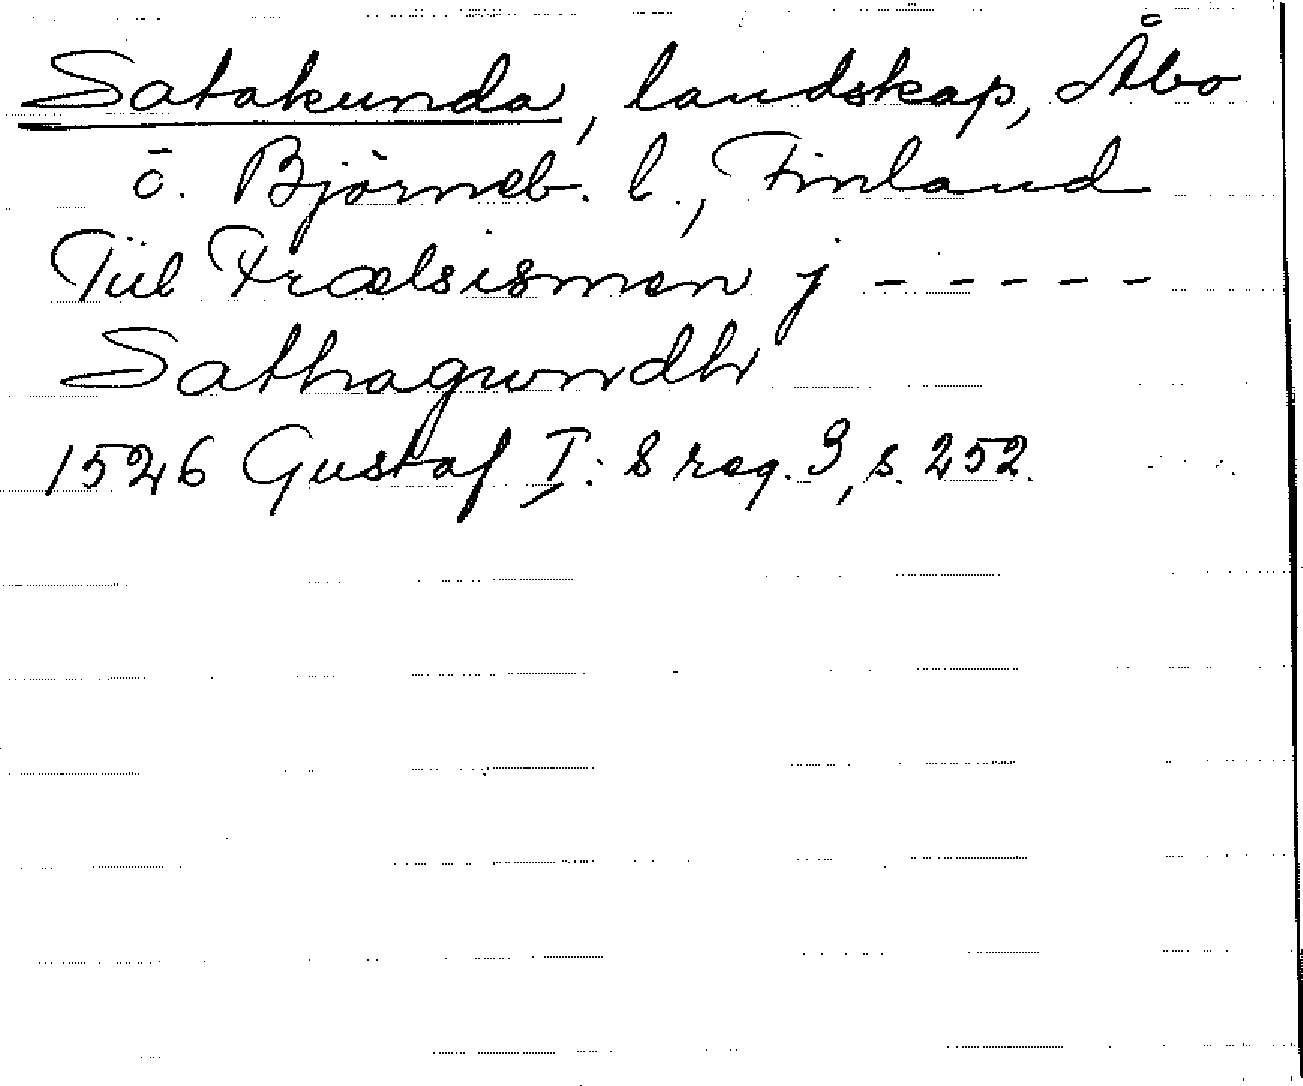 Satakunda, landskap, Åbo
o. Björneb. l., Finland
Tiil Frælsismen j - - - - -
Sathagwndh
1526 Gustaf I:s reg. 3, s. 252.